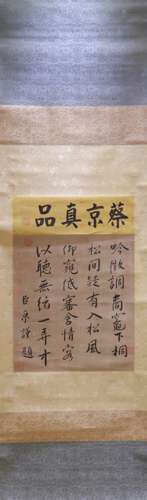 蔡京真品
吟徵調商竈下桐
松間疑有入松風
仰窺低審含情客
以聽無絃一弄中
臣京謹題